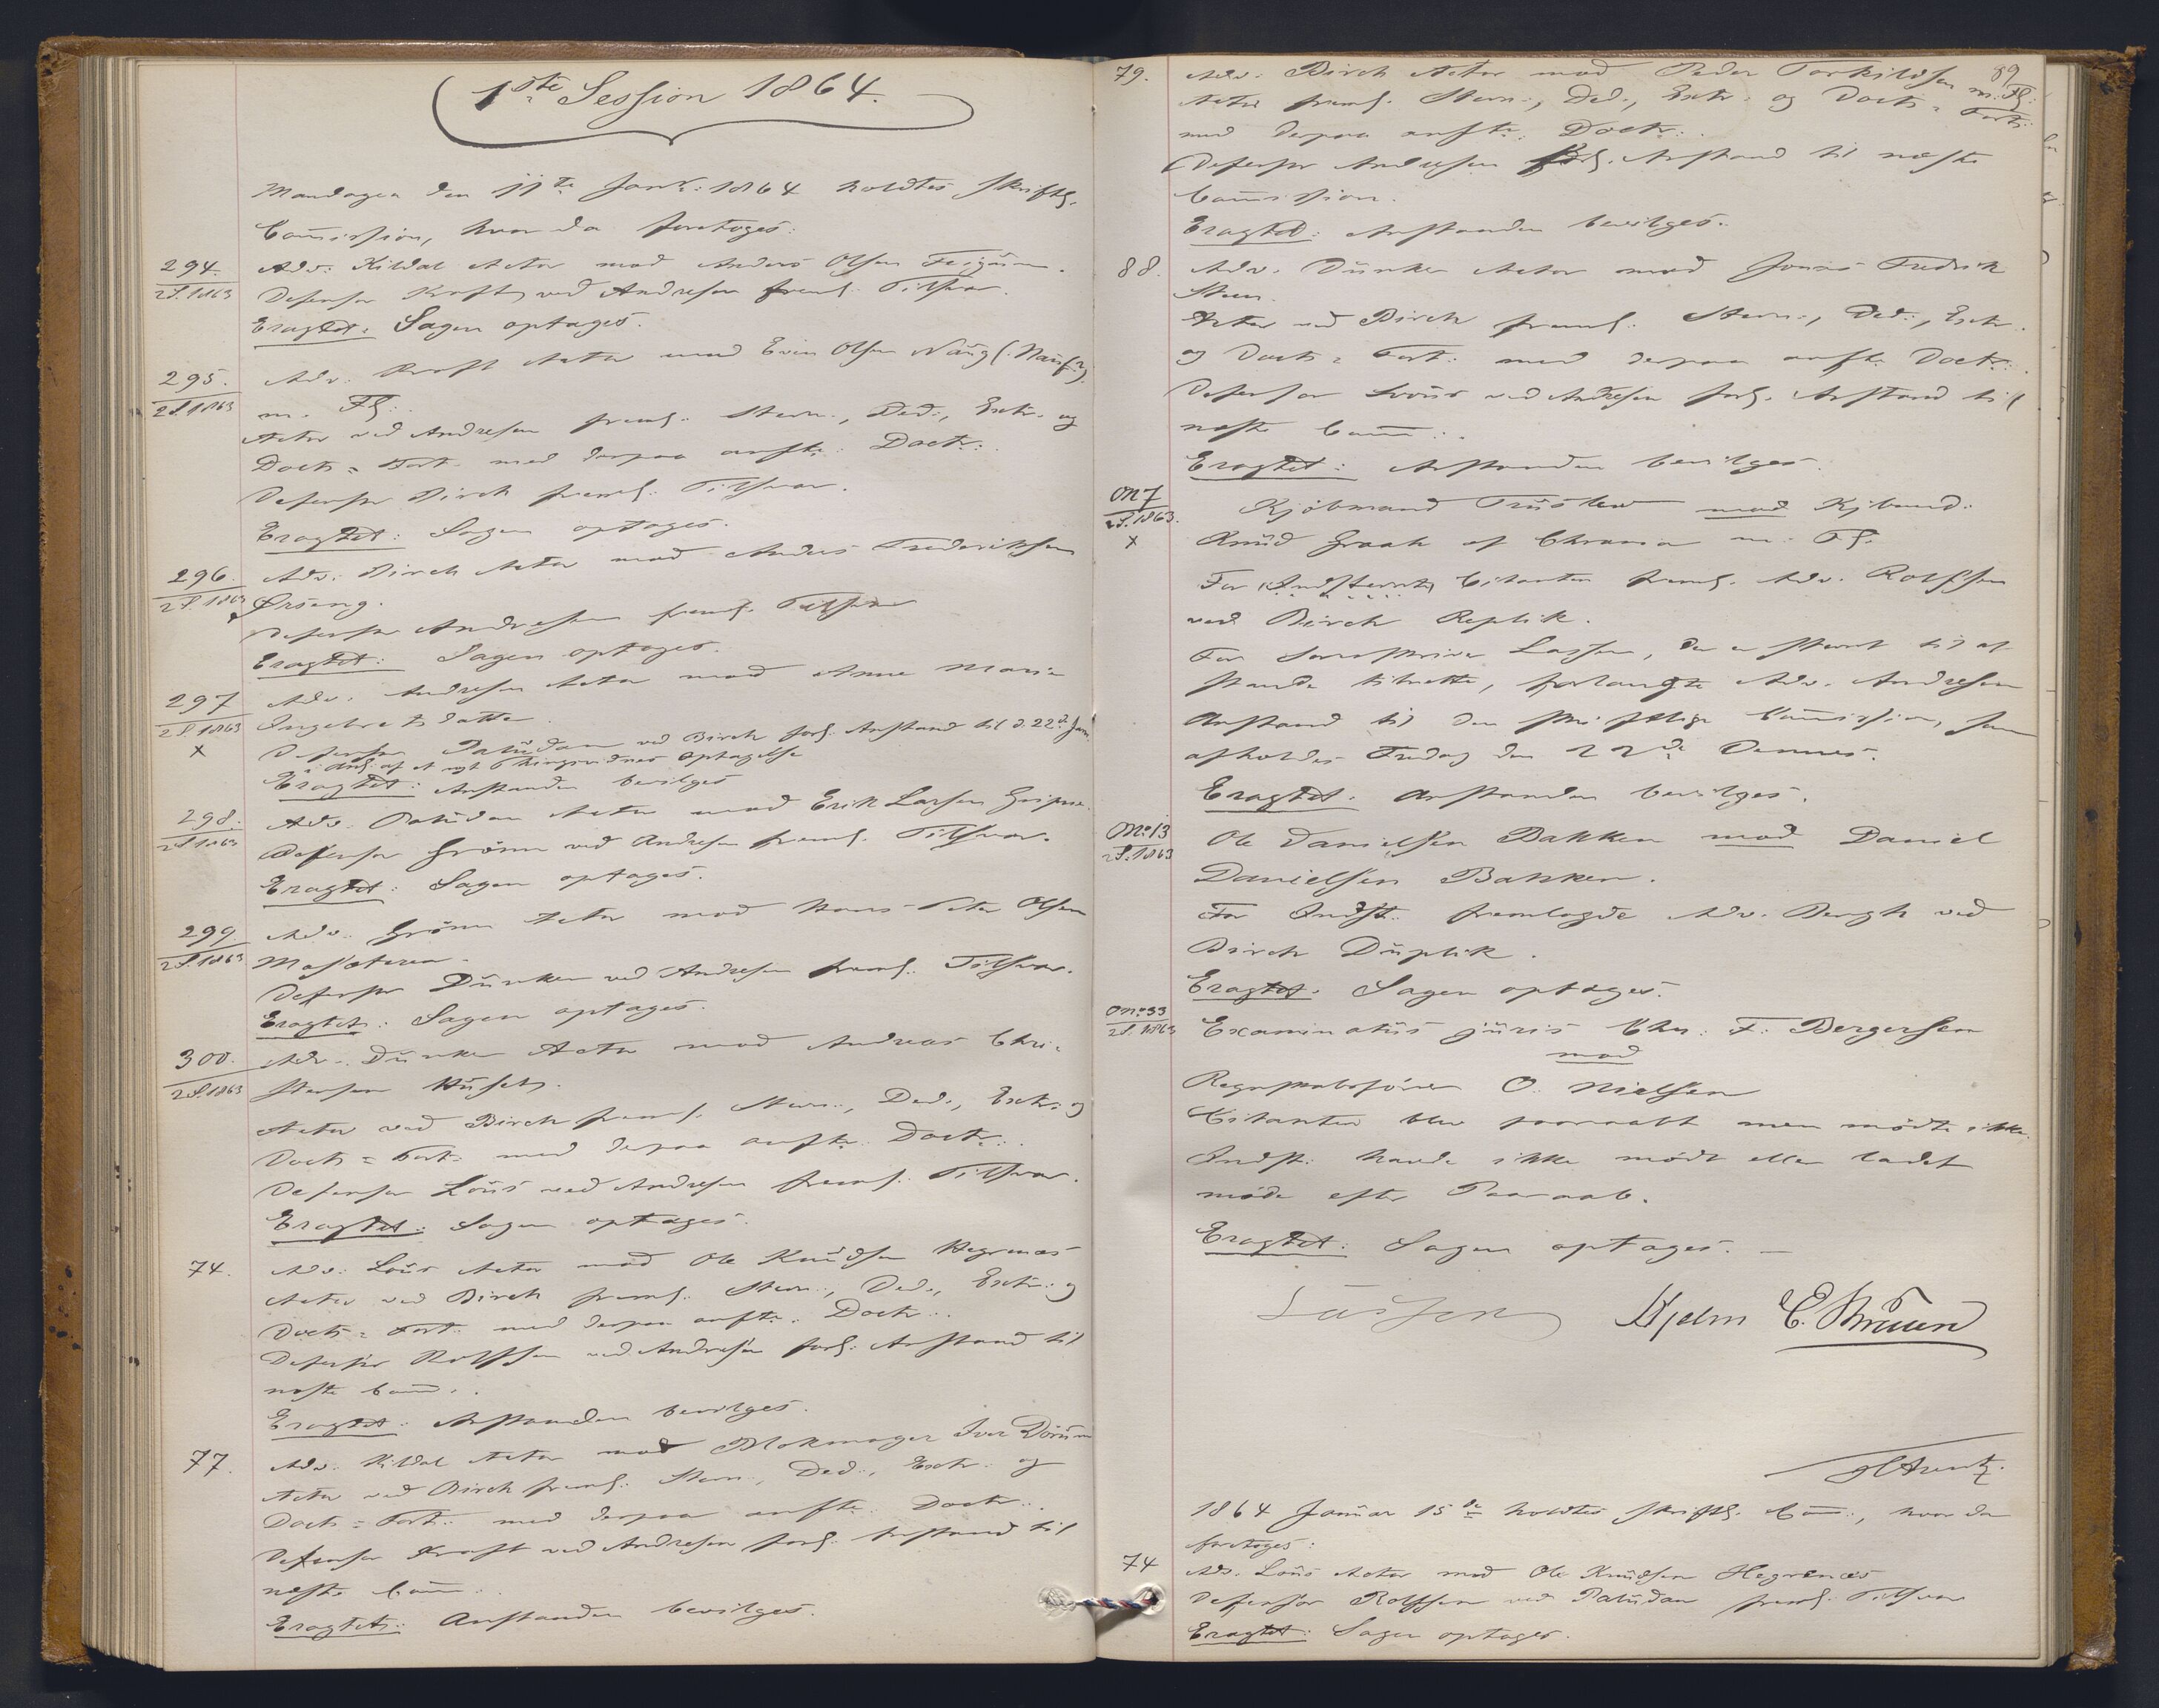 1ste Session 1864.
Mandagen den 11te Janr: 1864 holdtes skriftl.
Commission, hvor da foretoges:
294.
2 S. 1863
Adv: Kildal Actor mod Anders Olsen
Defensor Kraft ved Andresen freml. Tilsvar.
Eragtet: Sagen optages.
295.
2 S. 1863
Adv. Kraft Actor mod Even Olsen
m. Fl:
Actor ved Andresen freml: Stevn:, Ded:, Extr. og
Docts = Fort. med derpaa anfte: Doctr:
Defensor Birch freml: Tilsvar.
Eragtet: Sagen optages.
296.
2 S. 1863
Adv: Birch Actor mod Anders Frederiksen
Defensor Andresen freml. Tilsvar
Eragtet: Sagen optages.
297
2 S. 1863
x
Adv. Andresen Actor mod Anne Marie
Ingebretsdatter.
Defensor Paludan ved Birch forl. Anstand til d. 22de Jan.
i Anl: af et nyt Thingsvidnes Optagelse
Eragtet: Anstanden bevilges
298.
2 S. 1863
Adv. Paludan Actor mod Erik Larsen
Defensor Grönn ved Andresen freml. Tilsvar.
Eragtet: Sagen optages.
299.
2 S. 1863
Adv. Grönn Actor mod Hans Peter Olsen
Defensor Dunker ved Andresen freml: Tilsvar.
Eragtet: Sagen optages.
300.
2 S. 1863
Adv. Dunker Actor mod Andreas Chri-
stensen
Actor ved Birch freml. Stevn:, Ded., Extr: og
Docts = Fort: med derpaa anfte. Doctr:.
Defensor Lous ved Andresen freml. Tilsvar.
Eragtet: Sagen optages.
74.
Adv. Lous Actor mod Ole Knudsen Hegrenæs
Actor ved Birch freml. Stevn:, Ded., Extr: og
Docts = Fort: med derpaa anfte. Doctr:.
Defensor Rolfsen ved Andresen forl: Anstand til
næste Comm:.
Eragtet: Anstanden bevilges.
77.
Adv. Kildal Actor mod Blokmager Iver
Actor ved Birch freml: Stevn:, Ded:, Extr: og
Docts = Fort: med derpaa anfte Doctr:.
Defensor Kraft ved Andresen forl. Anstand til
næste Comm:.
Eragtet: Anstanden bevilges.
89
79.
Adv. Birch Actor mod Peder Torkildsen m. Fl:
Actor freml. Stevn:, Ded:, Extr. og Docts = Fort:
med derpaa anfte: Doctr:.
Defensor Andresen forl. Anstand til næste
Commission.
Eragtet: Anstanden bevilges.
88.
Adv. Dunker Actor mod Jonas Fredrik
Steen.
Actor ved Birch freml: Stevn:, Ded:, Extr.
og Docts = Fort: med derpaa anfte Doctr:.
Defensor Lous ved Andresen forl. Anstand til
næste Comm:.
Eragtet: Anstanden bevilges.
ON 7
2 S. 1863.
x
Kjöbmand mod Kjbmd:
Knud Graah af Chrania m: Fl.
For Citanten freml. Adv. Rolfsen
ved Birch Replik.
For Sorenskriver Lassen, der er stevnt til at
staae tilrette, forlangte Adv. Andresen
Anstand til den skriftlige Commission, som
afholdes Fredag den 22de Dennes.
Eragtet: Anstanden bevilges.
ON: 13
2 S. 1863
Ole Danielsen Bakken mod Daniel
Danielsen Bakken.
For Indst: fremlagde Adv. Bergh ved
Birch Duplik.
Eragtet: Sagen optages.
ON: 33
2 S. 1863
Examinatus juris Chr. F. Bergersen
mod
Regnskabsförer O. Nielsen
Citanten blev paaraabt men mödte ikke.
Indst: havde ikke mödt eller ladet
möde efter Paaraab.
Eragtet: Sagen optages. —
Lassen Hjelm
1864 Januar 15de holdtes skriftl. Com:, hvor da
foretoges:
74
Adv. Lous Actor mod Ole Knudsen Hegrenæs
Defensor Rolfsen ved Paludan freml. Tilsvar
Eragtet: Sagen optages.